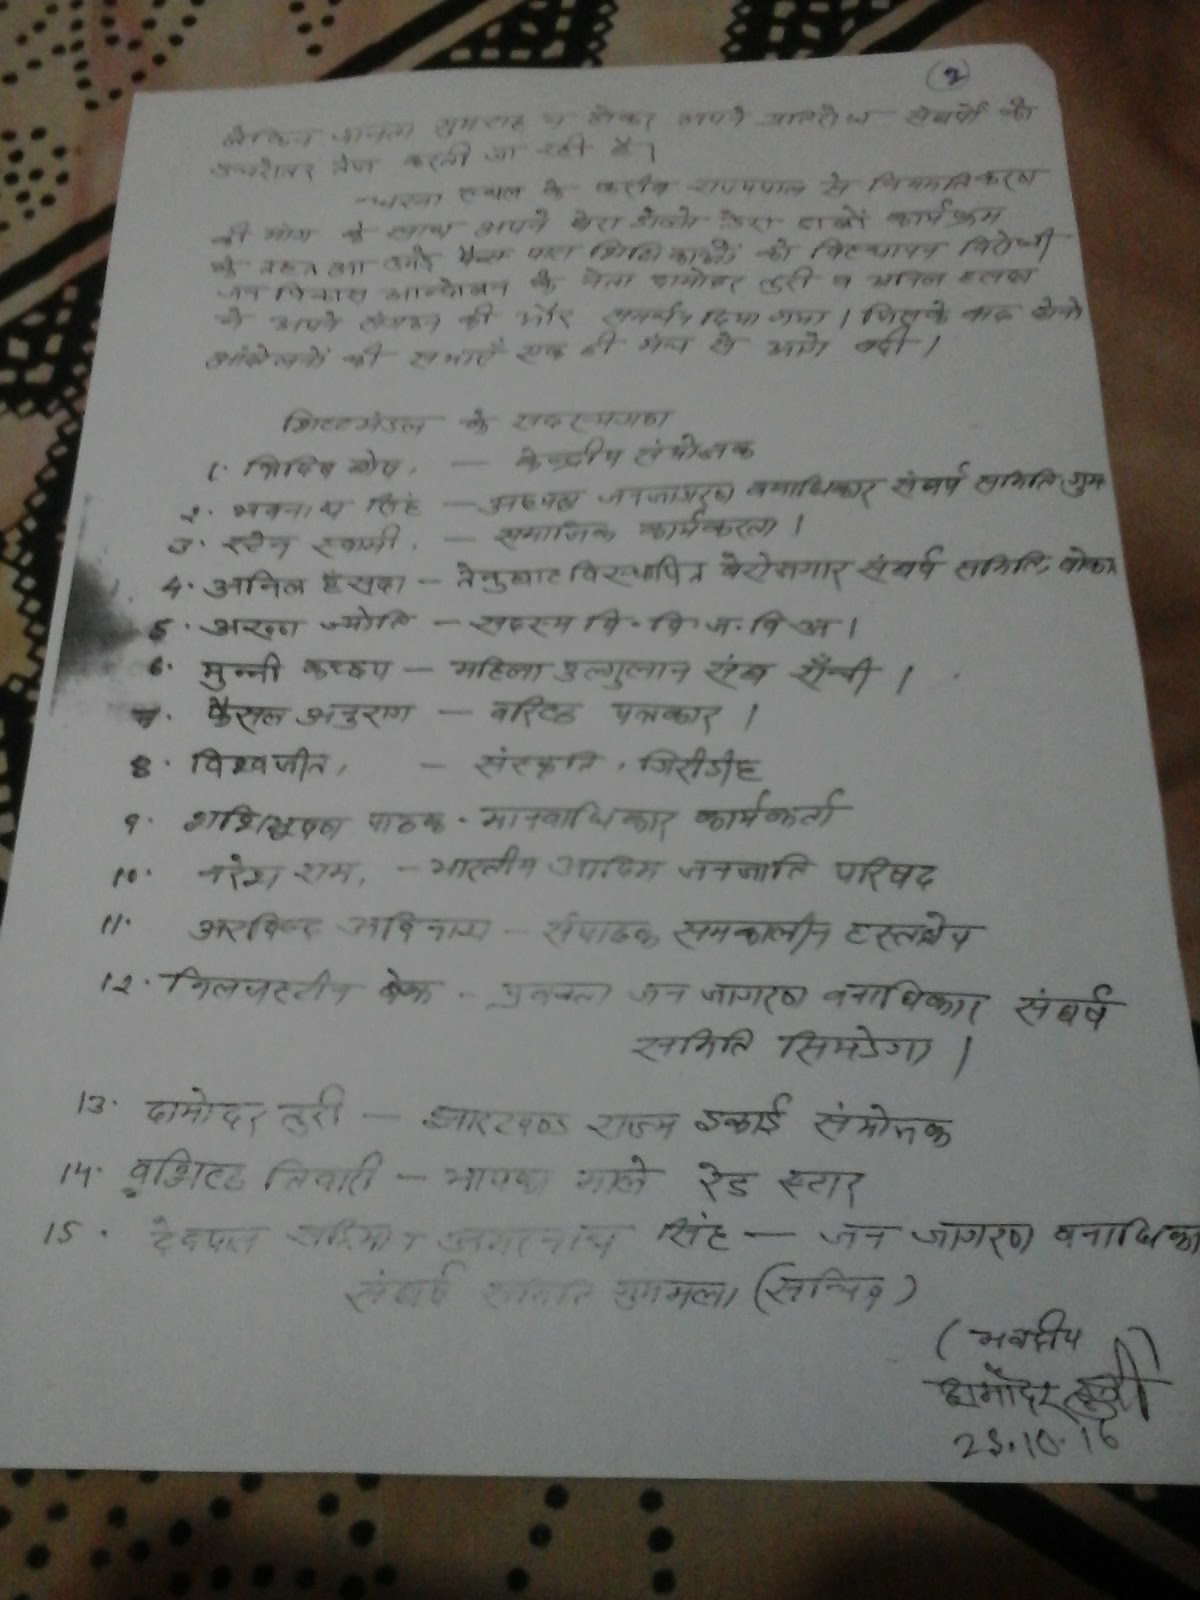 (2)
लेकिन जनता गुमराह न होकर अपने प्रतिरोध संघर्षों को
उत्तरोत्तर तेज करती जा रही है।
धरना स्थल के करीब राज्यपाल से नियमतिकरण
की मांग के साथ अपने डेरा डालो कार्यक्रम
के तहत पारा शिक्षिकाओं को विस्थापन विरोधी
जन विकास आन्दोलन के नेता दामोदर तुरी व अनिल हंसदा
ने अपने संगठन की और समर्थन दिया गया। जिसके बाद दोनो
आंदोलनों की सभाएँ एक ही मंच से आगे बढ़ी।
शिष्टमंडल के सदस्यगण
1. त्रिदिब घोष, — केन्द्रीय संयोजक
2. भवनाथ सिंह — अध्यक्ष जनजागरण वनाधिकार संघर्ष समिति, गुम
3. स्टेन स्वामी, — समाजिक कार्यकरता।
4. अनिल हंसदा — तेनुघाट विस्थापित बेरोजगार संघर्ष समिति, बोका
5. अरुण ज्योति — सदस्य वि. वि. ज. वि अ।
6. मुन्नी कच्छप — महिला उलगुलान संघ राँची।
7. फैसल अनुराग — वरिष्ठ पत्रकार।
8. विश्वजीत, — संस्कृति, गिरीडीह
9. शशिभूषण पाठक - मानवाधिकार कार्यकर्ता
10. नरेश राम, — भारतीय आदिम जनजाति परिषद
11. अरविन्द अविनाश — संपादक समकालीन हस्तक्षेप
12. जन जागरण वनाधिकार संघर्ष
समिति सिमडेगा।
13. दामोदर तुरी — झारखण्ड राज्य इकाई संयोजक
14. वशिष्ठ तिवारी — भाकपा माले रेड स्टार
15. अमरनाथ सिंह — जन जागरण वनाधिका
संघर्ष समिति गुममला (सचिव)
(भवदीय)
दामोदर तुरी
25.10.16